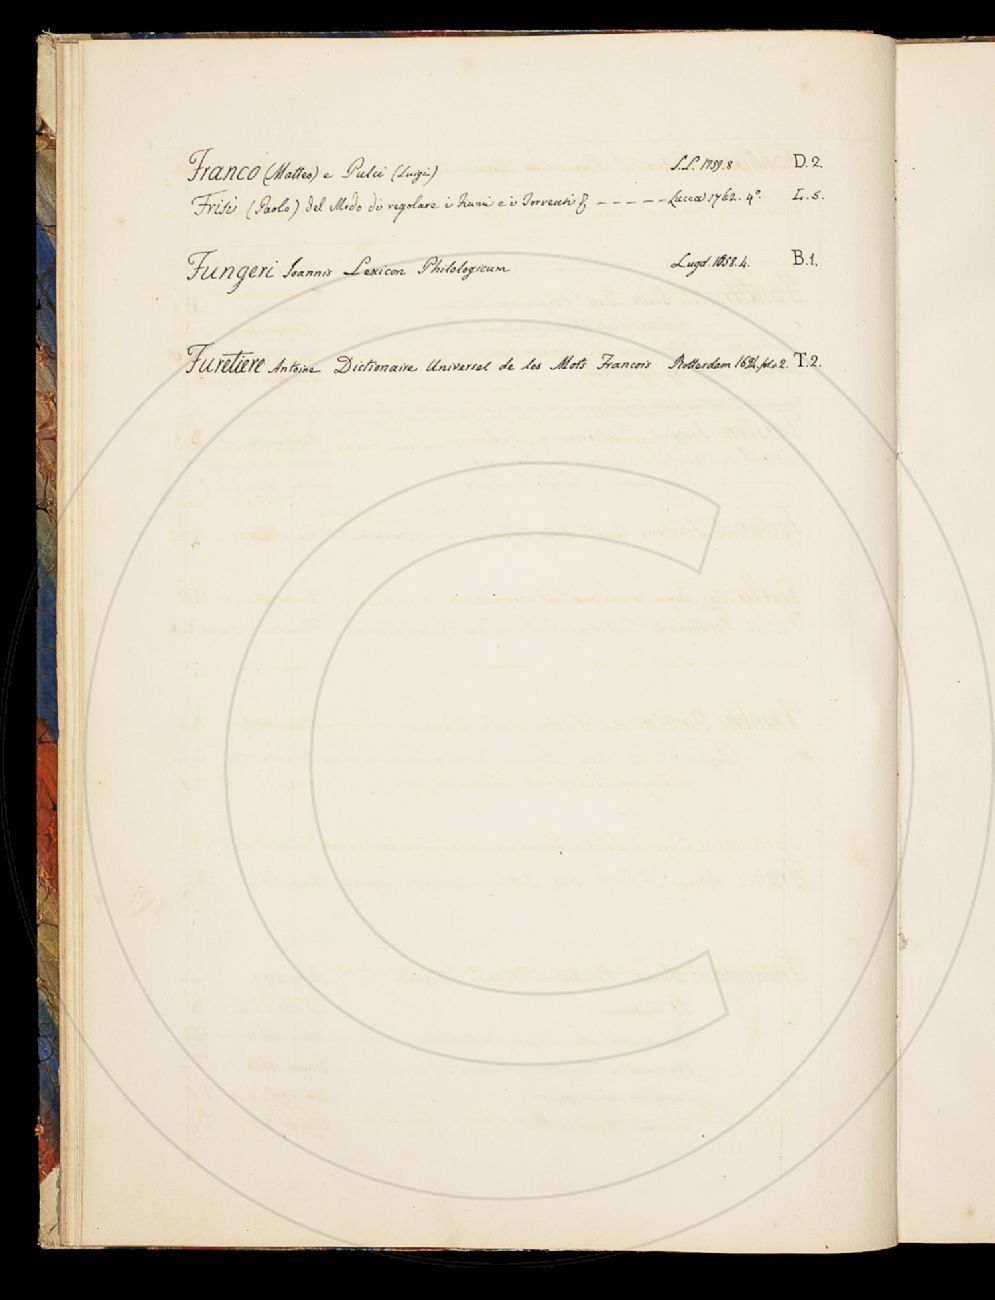 Franco (Matteo) e Pulci (Luigi) S.L. 1759. 8 D. 2.
Frisi (Paolo) del Modo di regolare i Fiumi e i Torrenti & – – – – – Lucca 1762. 4º. L. 5.
Fungeri Joannis Lexicon Philologicum Lugd. 1658. 4. B. 1.
Furetiere Antoine Dictionaire Universel de les Mots Francois Rotterdam 1691. fol. v. 2. T. 2.